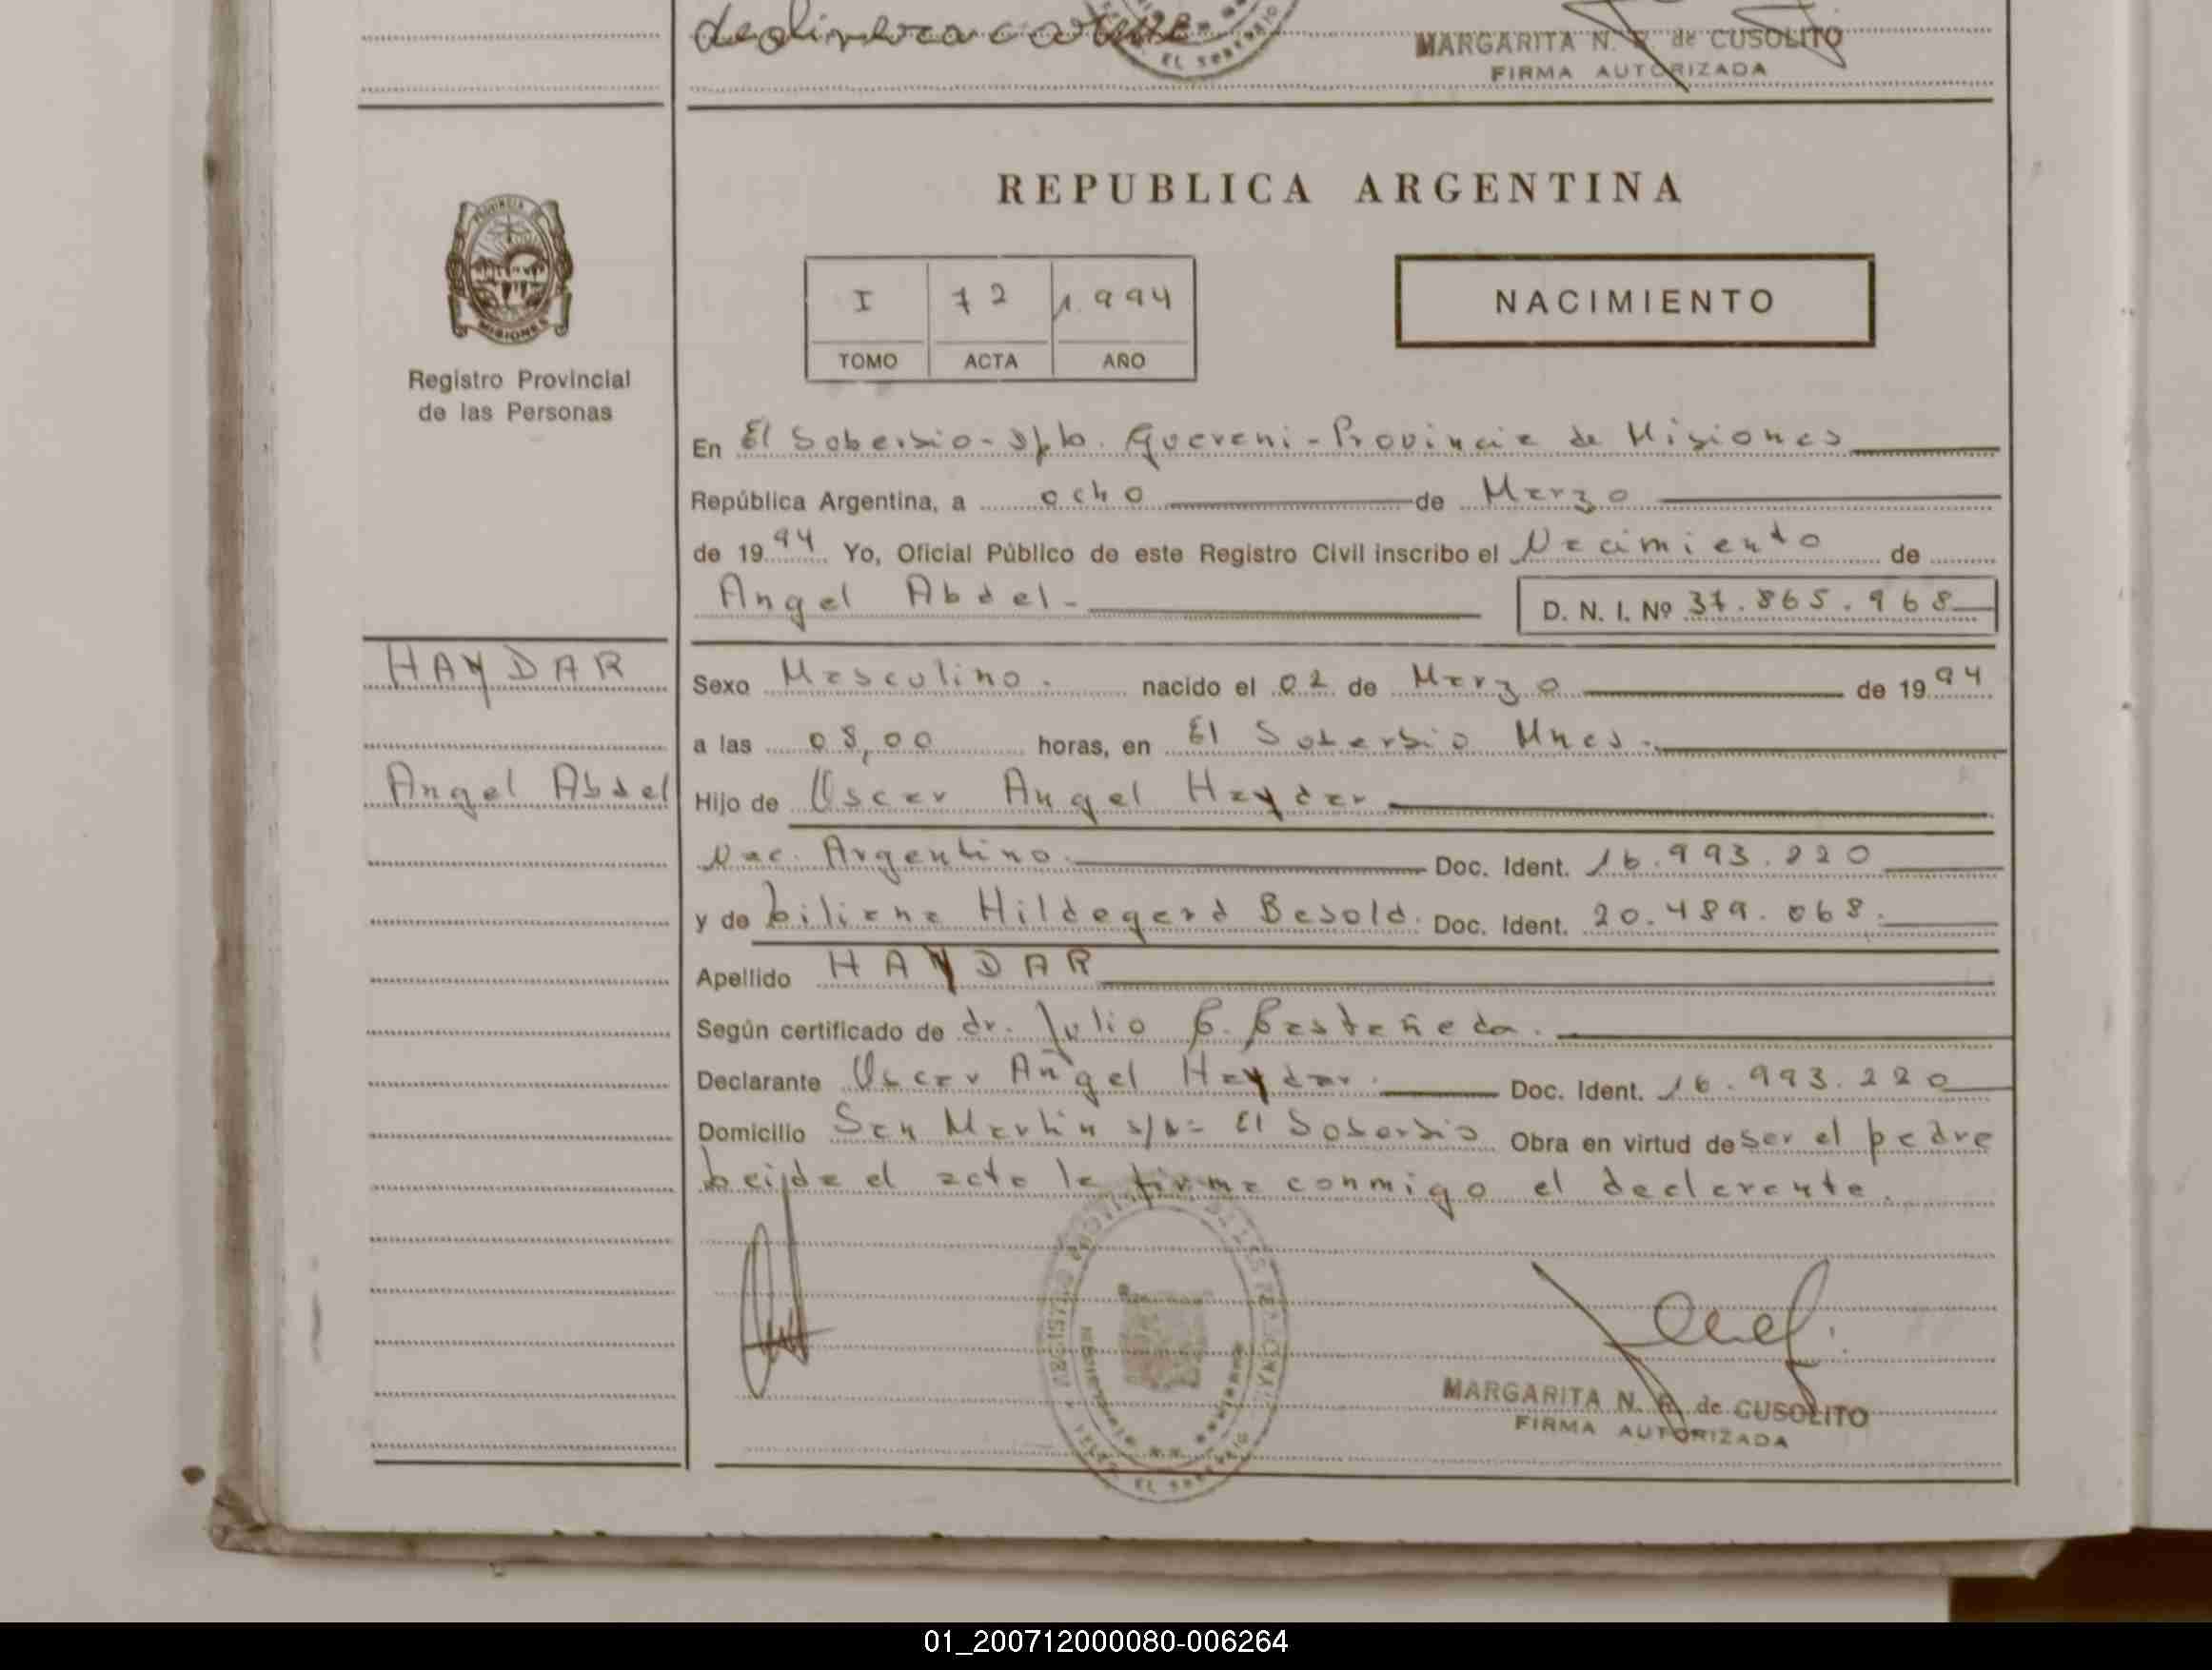 declinante
MARGARITA N. R. de CUSOLITO
FIRMA AUTORIZADA
EL SOBERBIO
REPUBLICA ARGENTINA
PROVINCIA DE
MISIONES
I 72 1.994
NACIMIENTO
TOMO ACTA AÑO
Registro Provincial
de las Personas
En El Soberbio - Dpto. Guarani - Provincia de Misiones
República Argentina, a ocho de Marzo
de 1994 Yo, Oficial Público de este Registro Civil inscribo el Nacimiento de
Angel Abdel - D. N. I. Nº 37.865.968
HAYDAR
Sexo Masculino. nacido el 02 de Marzo de 1994
a las 08,00 horas, en El Soberbio Mnes.
Angel Abdel
Hijo de Oscar Angel Haydar
Nac. Argentino. Doc. Ident. 16.993.220
y de Liliana Hildegard Besold. Doc. Ident. 20.489.068.
Apellido HAYDAR
Según certificado de dr. Julio C. Castañeda.
Declarante Oscar Angel Haydar. Doc. Ident. 16.993.220
Domicilio San Martin s/n= El Soberbio Obra en virtud de ser el padre
Leida el acta la firma conmigo el declarante.
MARGARITA N. R. de CUSOLITO
FIRMA AUTORIZADA
EL SOBERBIO
01_200712000080-006264